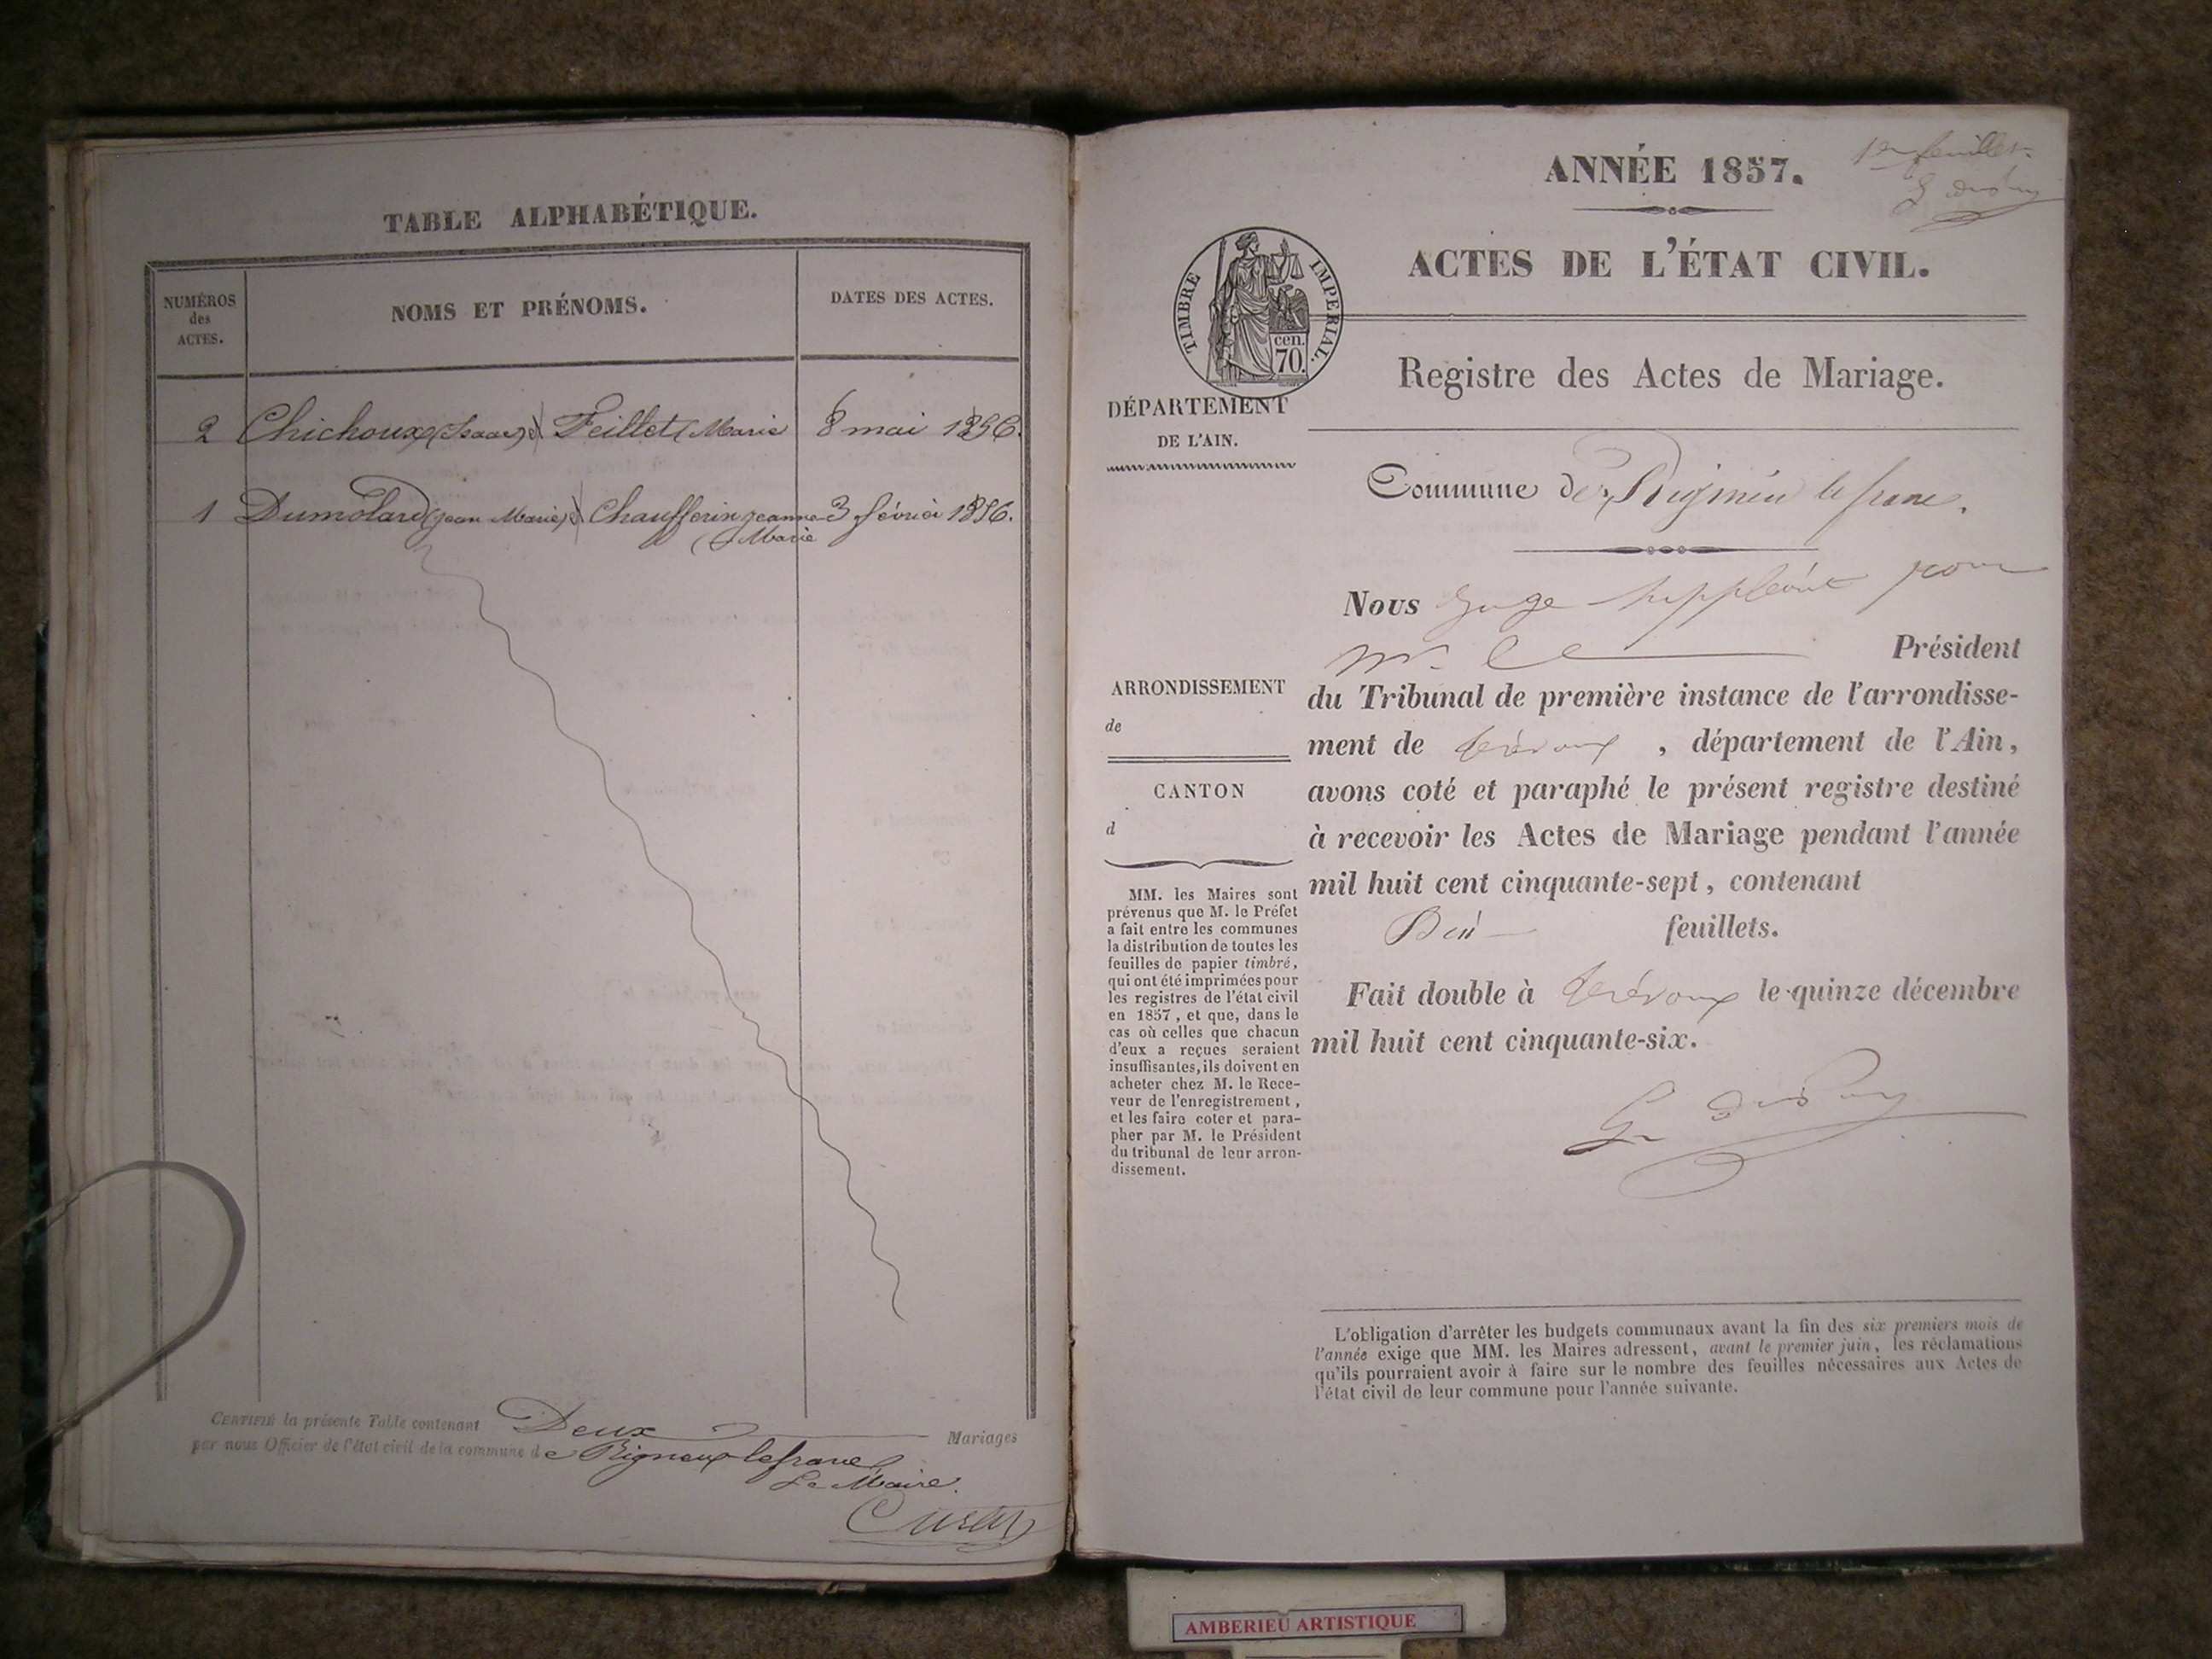 TABLE ALPHABÉTIQUE.
NUMÉROS
des
ACTES.
NOMS ET PRÉNOMS.
DATES DES ACTES.
2 Chichoux (Isaac) et Feillet (Marie 8 mai 1856.
1 Dumolard (Jean Marie) et Chaufferin Jeanne 3 février 1856.
Marie
CERTIFIÉ la présente Table contenant Deux Mariages
par nous Officier de l'état civil de la commune de Rigneux lefranc
Le Maire.
ANNÉE 1857.
1er feuillet.
ACTES DE L'ÉTAT CIVIL.
TIMBRE IMPERIAL.
cen.
70.
Registre des Actes de Mariage.
DÉPARTEMENT
DE L'AIN.
Commune de le franc.
Nous Juge suppléant pour
Mr le Président
ARRONDISSEMENT
de
du Tribunal de première instance de l'arrondisse-
ment de trévoux , département de l'Ain,
CANTON
d
avons coté et paraphé le présent registre destiné
à recevoir les Actes de Mariage pendant l'année
mil huit cent cinquante-sept, contenant
feuillets.
Fait double à trévoux le quinze décembre
mil huit cent cinquante-six.
MM. les Maires sont
prévenus que M. le Préfet
a fait entre les communes
la distribution de toutes les
feuilles de papier timbré,
qui ont été imprimées pour
les registres de l'état civil
en 1857, et que, dans le
cas où celles que chacun
d'eux a reçues seraient
insuffisantes, ils doivent en
acheter chez M. le Rece-
veur de l'enregistrement,
et les faire coter et para-
pher par M. le Président
du tribunal de leur arron-
dissement.
L'obligation d'arrêter les budgets communaux avant la fin des six premiers mois de
l'année exige que MM. les Maires adressent, avant le premier juin, les réclamations
qu'ils pourraient avoir à faire sur le nombre des feuilles nécessaires aux Actes de
l'état civil de leur commune pour l'année suivante.
AMBERIEU ARTISTIQUE